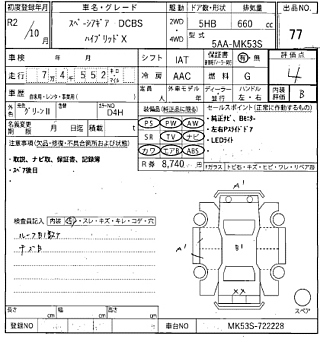 初度登録年月 車名・グレード 駆動 ドア数・形状 排気量 出品NO.
R2/10月 スペーシアギア DCBS ハイブリッドX 2WD・4WD 5HB 660 cc 77
型式 5AA-MK53S
車検 年 月 シフト IAT 保証書 有・無 評価点
走行 7万4千552キロ 冷房 AAC 燃料 G 4
車歴 自家用・レンタ・事業用 定員 人 外車モデル 年 ディーラー 並行 ハンドル 左・右 内装評価 B
外色 グリーンII 替色 カラーNO D4H
名義変更期限 月 日迄 積載 t
装備品(純正品に限る)
PS PW AW
SR TV ナビ
カワ エアB ABS
R券 8,740 円
セールスポイント(正常に動作するもの)
・純正ナビ、Bモニター
・左右Pスライドドア
・LEDライト
注意事項(欠品・修復・不具合箇所および状態)
・取説、ナビ取、保証書、記録簿
・スペア後日
Fガラス トビ石・キズ・ヒビ・ワレ・リペア跡
検査員記入 内装 スレ・キズ・キレ・コゲ・穴
A'
A' B'
××
スペア
長さ cm 幅 cm 高さ cm
登録NO 車台NO MK53S-722228